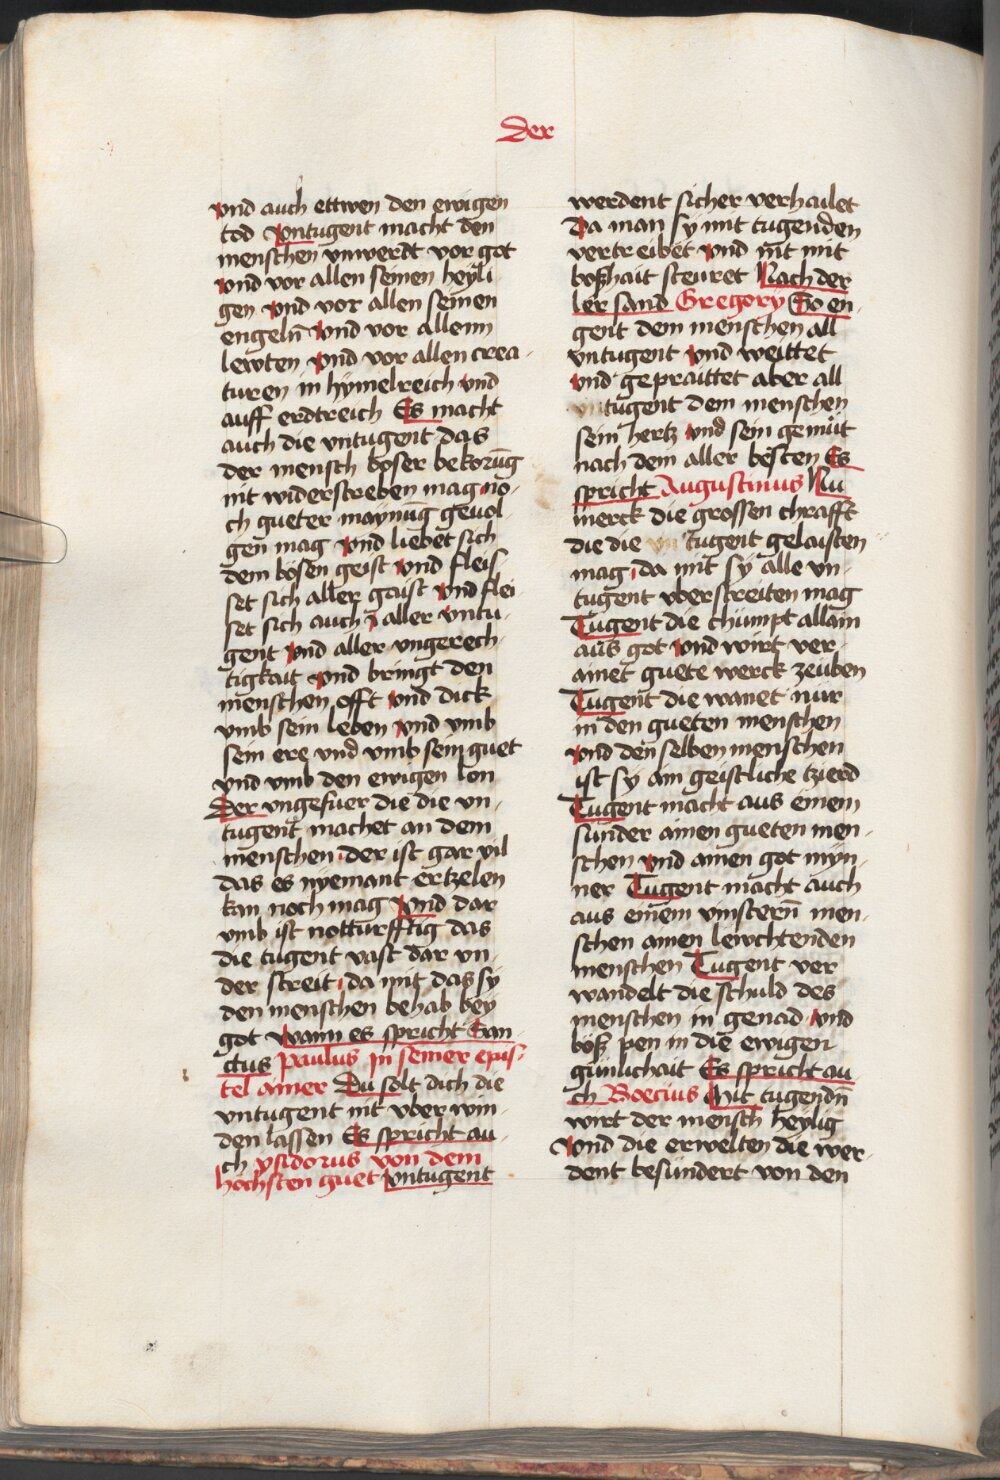 der
vnd auch ettwen den ewigen
tod vntugent macht den
menschen vnwerdt vor got
vnd vor allen seinen heyli
gen vnd vor allen seinen
engeln̄ vnd vor allenn
lewten vnd vor allen crea-
turen in hymelreich vnd
auff erdtreich Es macht
auch die vntugent das
der mensch böser bekorūg
nit widerstreben mag no-
ch gueter maynug gevol-
gen mag vnd liebet sich
dem bösen geist vnd fleis-
set sich aller gaist vnd flei-
set sich auch aller vntu-
gent vnd aller vngerech-
tigkait vnd bringt den
menschen offt vnd dick
vmb sein leben vnd vmb
sein ere vnd vmb sein guet
vnd vmb den ewigen lon
Der vngefuer die die vn-
tugent machet an dem
menschen der ist gar vil
das es nyemant ertzelen
kan noch mag vnd dar
vmb ist notturfftig das
die tugent vast dar vn-
der streit da mit das sy
den menschen behab bey
got wann es spricht San-
ctus Paulus in seiner epis-
tel ainer Du solt dich die
vntugent nit vber win-
den lassen Es spricht au-
ch ysidorus von dem
höchsten guet vntugent
werdent sicher verhailet
Da man sy mit tugenden
vertreibet vnd nit mit
boßhait steuret Nach der
ler sand Gregory So en-
gent dem menschen all
vntugent vnd weittet
vnd gepraittet aber all
tugent dem menschen
sein hertz vnd sein gemüt
nach dem aller besten Es
spricht Augustinus Nu
merck die grossen chrafft
die die tugent gelaisten
mag da mit sy alle vn-
tugent vberstreiten mag
Tugent die chümpt allain
aus got vnd wirt ver
ainet guete werck zeüben
Tugent die wanet nür
in den gueten menschen
vnd den selben menschen
ist sy ain geistliche tzierd
Tugent macht aus einem
sünder ainen gueten men-
schen vnd ainen got myn-
ner Tugent macht auch
aus einem vinstern̄ men-
schen ainen lewchtenden
menschen Tugent ver
wandelt die schuld des
menschen in genad vnd
böß pen in die ewigen
günlichait Es spricht au-
ch Boecius Mit tugendn̄
wirt der mensch heylig
vnd die erwelten die wer-
dent besündert von den